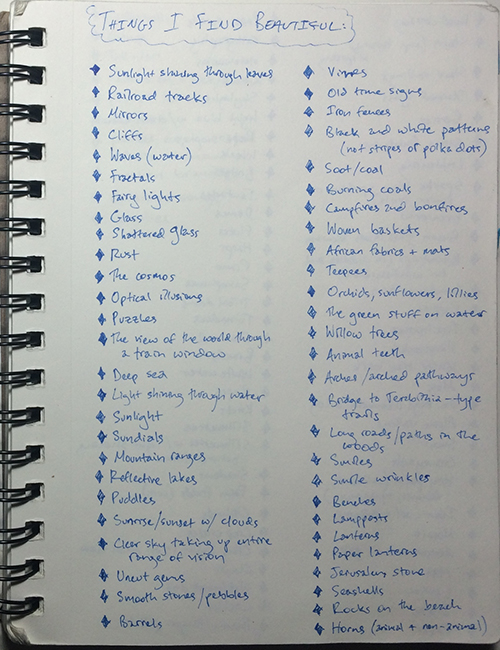 THINGS I FIND BEAUTIFUL:
Sunlight shining through leaves
Railroad tracks
Mirrors
Cliffs
Waves (water)
Fractals
Fairy lights
Glass
Shattered glass
Rust
The cosmos
Optical illusions
Puzzles
The view of the world through
a train window
Deep sea
Light shining through water
Sunlight
Sundials
Mountain ranges
Reflective lakes
Puddles
Sunrise/sunset w/ clouds
Clear sky taking up entire
range of vision
Uncut gems
Smooth stones/pebbles
Barrels
Vines
Old time signs
Iron fences
Black and white patterns
(not stripes or polka dots)
Soot/coal
Burning coals
Campfires and bonfires
Woven baskets
African fabrics + mats
Teepees
Orchids, sunflowers, lillies
The green stuff on water
Willow trees
Animal teeth
Arches/arched pathways
Bridge to Terabithia-type
trails
Long roads/paths in the
woods
Smiles
Smile wrinkles
Benches
Lampposts
Lanterns
Paper lanterns
Jerusalem stone
Seashells
Rocks on the beach
Horns (animal + non-animal)